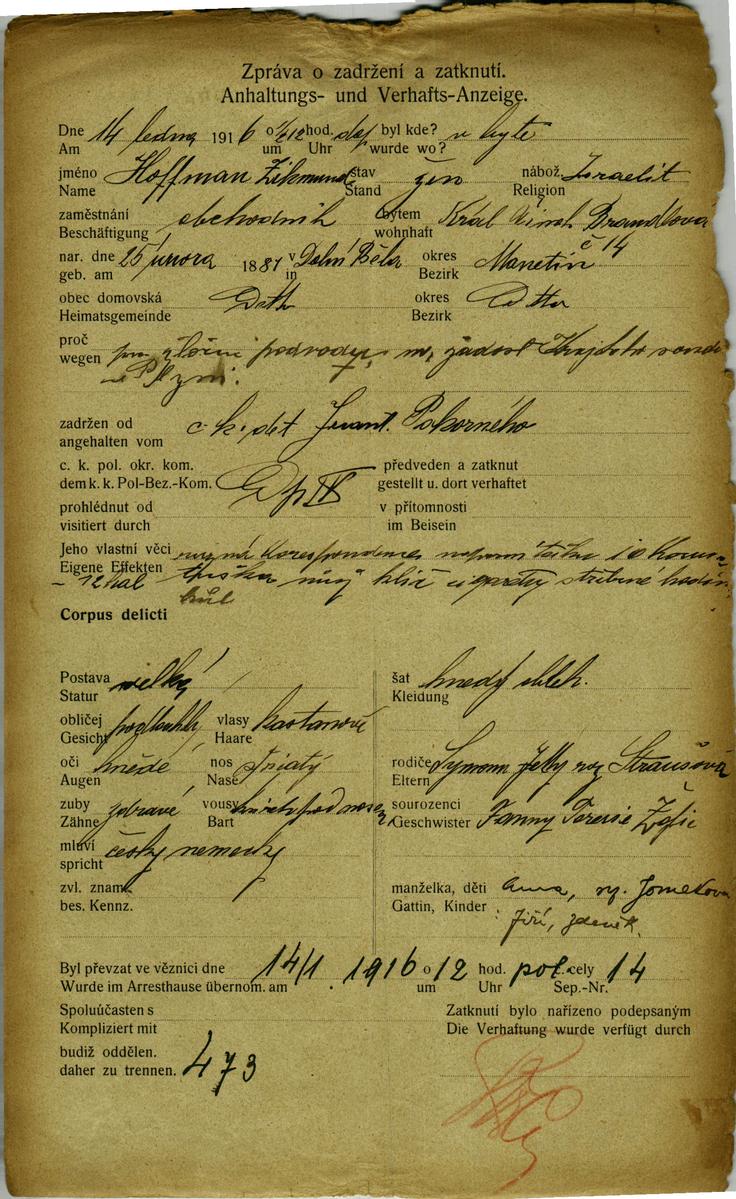 Zpráva o zadržení a zatknutí.
Anhaltungs- und Verhafts-Anzeige.
Dne 14 ledna 1916 o ½12 hod. dop byl kde? v bytě
Am um Uhr wurde wo?
jméno Hoffman Zikmund stav žen nábož. Israelit
Name Stand Religion
zaměstnání obchodník bytem Král Vinoh Brandlova
Beschäftigung wohnhaft č 14
nar. dne 25 února 1881 v Dolní Běla okres Manetín
geb. am in Bezirk
obec domovská Dtto okres Ditto
Heimatsgemeinde Bezirk
proč pro zločin podvodu, na žádost Krajského soudu
wegen v Plzni.
zadržen od c. k. det Frant. Pokorného
angehalten vom
c. k. pol. okr. kom. Dp IV předveden a zatknut
dem k. k. Pol-Bez.-Kom. gestellt u. dort verhaftet
prohlédnut od v přítomnosti
visitiert durch im Beisein
Jeho vlastní věci různá korespondence 10 Korun
Eigene Effekten
- 12 hal klíč cigarety stříbrné hodin
hůl
Corpus delicti
Postava velký šat hnedý oblek.
Statur Kleidung
obličej podlouhlý vlasy kaštanové
Gesicht Haare
oči hnědé nos špiatý rodiče Symon Jetty roz Straušová
Augen Nase Eltern
zuby zdravé vousy pod nosem sourozenci Fanny Teresie Žofie
Zähne Bart Geschwister
mluví česky nemecky
spricht
zvl. znam. manželka, děti Anna,
bes. Kennz. Gattin, Kinder Jiří, Zdeněk.
Byl převzat ve věznici dne 14/1. 1916 o 12 hod. pol. cely 14
Wurde im Arresthause übernom. am um Uhr Sep.-Nr.
Spoluúčasten s Zatknutí bylo nařízeno podepsaným
Kompliziert mit Die Verhaftung wurde verfügt durch
budiž oddělen. 473
daher zu trennen.